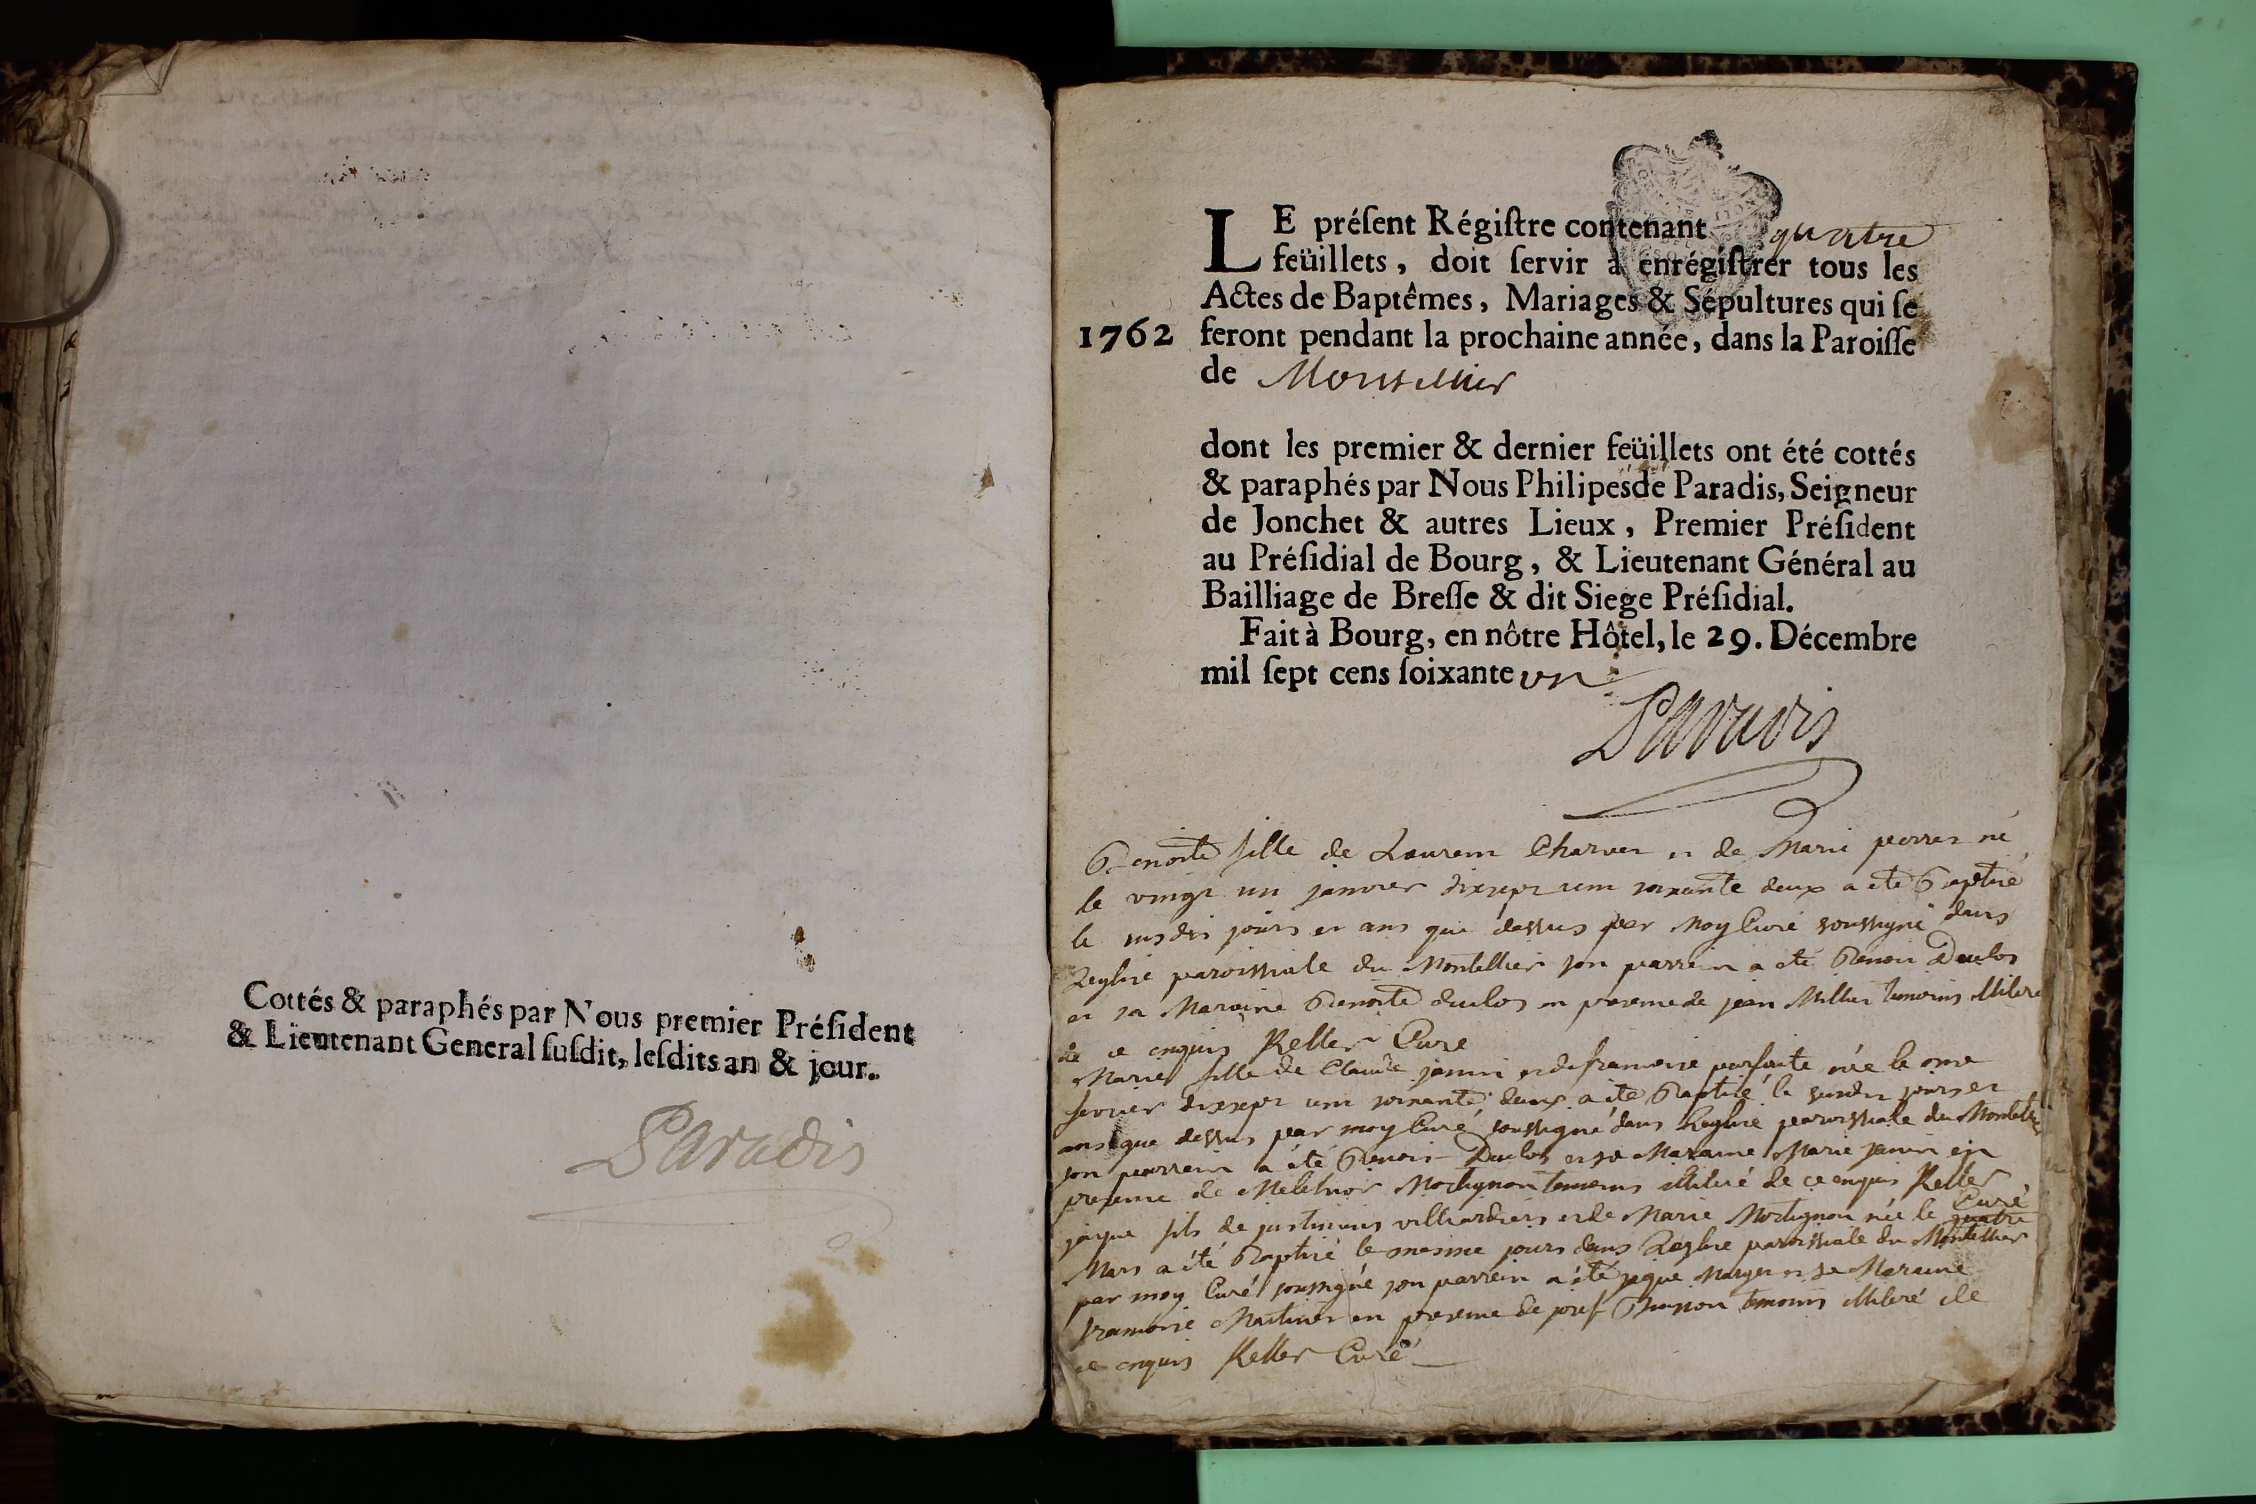 Cottés & paraphés par Nous premier Préſident
& Lieutenant General ſuſdit, leſdits an & jour.
Paradis
LE préſent Régiſtre contenant quatre
feüillets, doit ſervir à enrégiſtrer tous les
Actes de Baptêmes, Mariages & Sépultures qui ſe
1762 feront pendant la prochaine année, dans la Paroiſſe
de Montellier
dont les premier & dernier feüillets ont été cottés
& paraphés par Nous Philipes de Paradis, Seigneur
de Jonchet & autres Lieux, Premier Préſident
au Préſidial de Bourg, & Lieutenant Général au
Bailliage de Breſſe & dit Siege Préſidial.
Fait à Bourg, en nôtre Hôtel, le 29. Décembre
mil ſept cens ſoixante un
Paradis
Benoite fille de Laurent Charvet et de Marie perret né
le vingt un janvier dixsept cent soixante deux a ete Baptisé
le susdit jours et ans que dessus par Moy Curé soussigné dans
Leglise paroissiale du Montellier son parrein a eté Benoit Duclos
et sa Maraine Benoite duclos en presence de jean Millier temoins illiteré
de ce enquis Keller Cure
Marie fille de Claude janin et de francoise parfaite née le onse
fevrier dixsept cent soixante deux a ete Baptisé le susdit jours et
ans que dessus par moy Curé soussigné dans Leglise paroissiale du Montellier
son parrein a été Benoit Duclos et sa Maraine Marie janin en
presence de Melchior Mochignon temoins illiteré de ce enquis Keller
Curé
jaque fils de justinins villiardiers et de Marie Mochignon née le quatre
Mars a été Baptisé le mesme jours dans Leglise paroissiale du Montellier
par moy Curé soussigné son parrein a été jaque Marger et sa Maraine
francoise Martinet en presence de josef Buisson temoins illiteré de
ce enquis Keller Curé